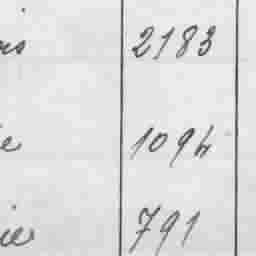 is 2183
e 1094
ie 791